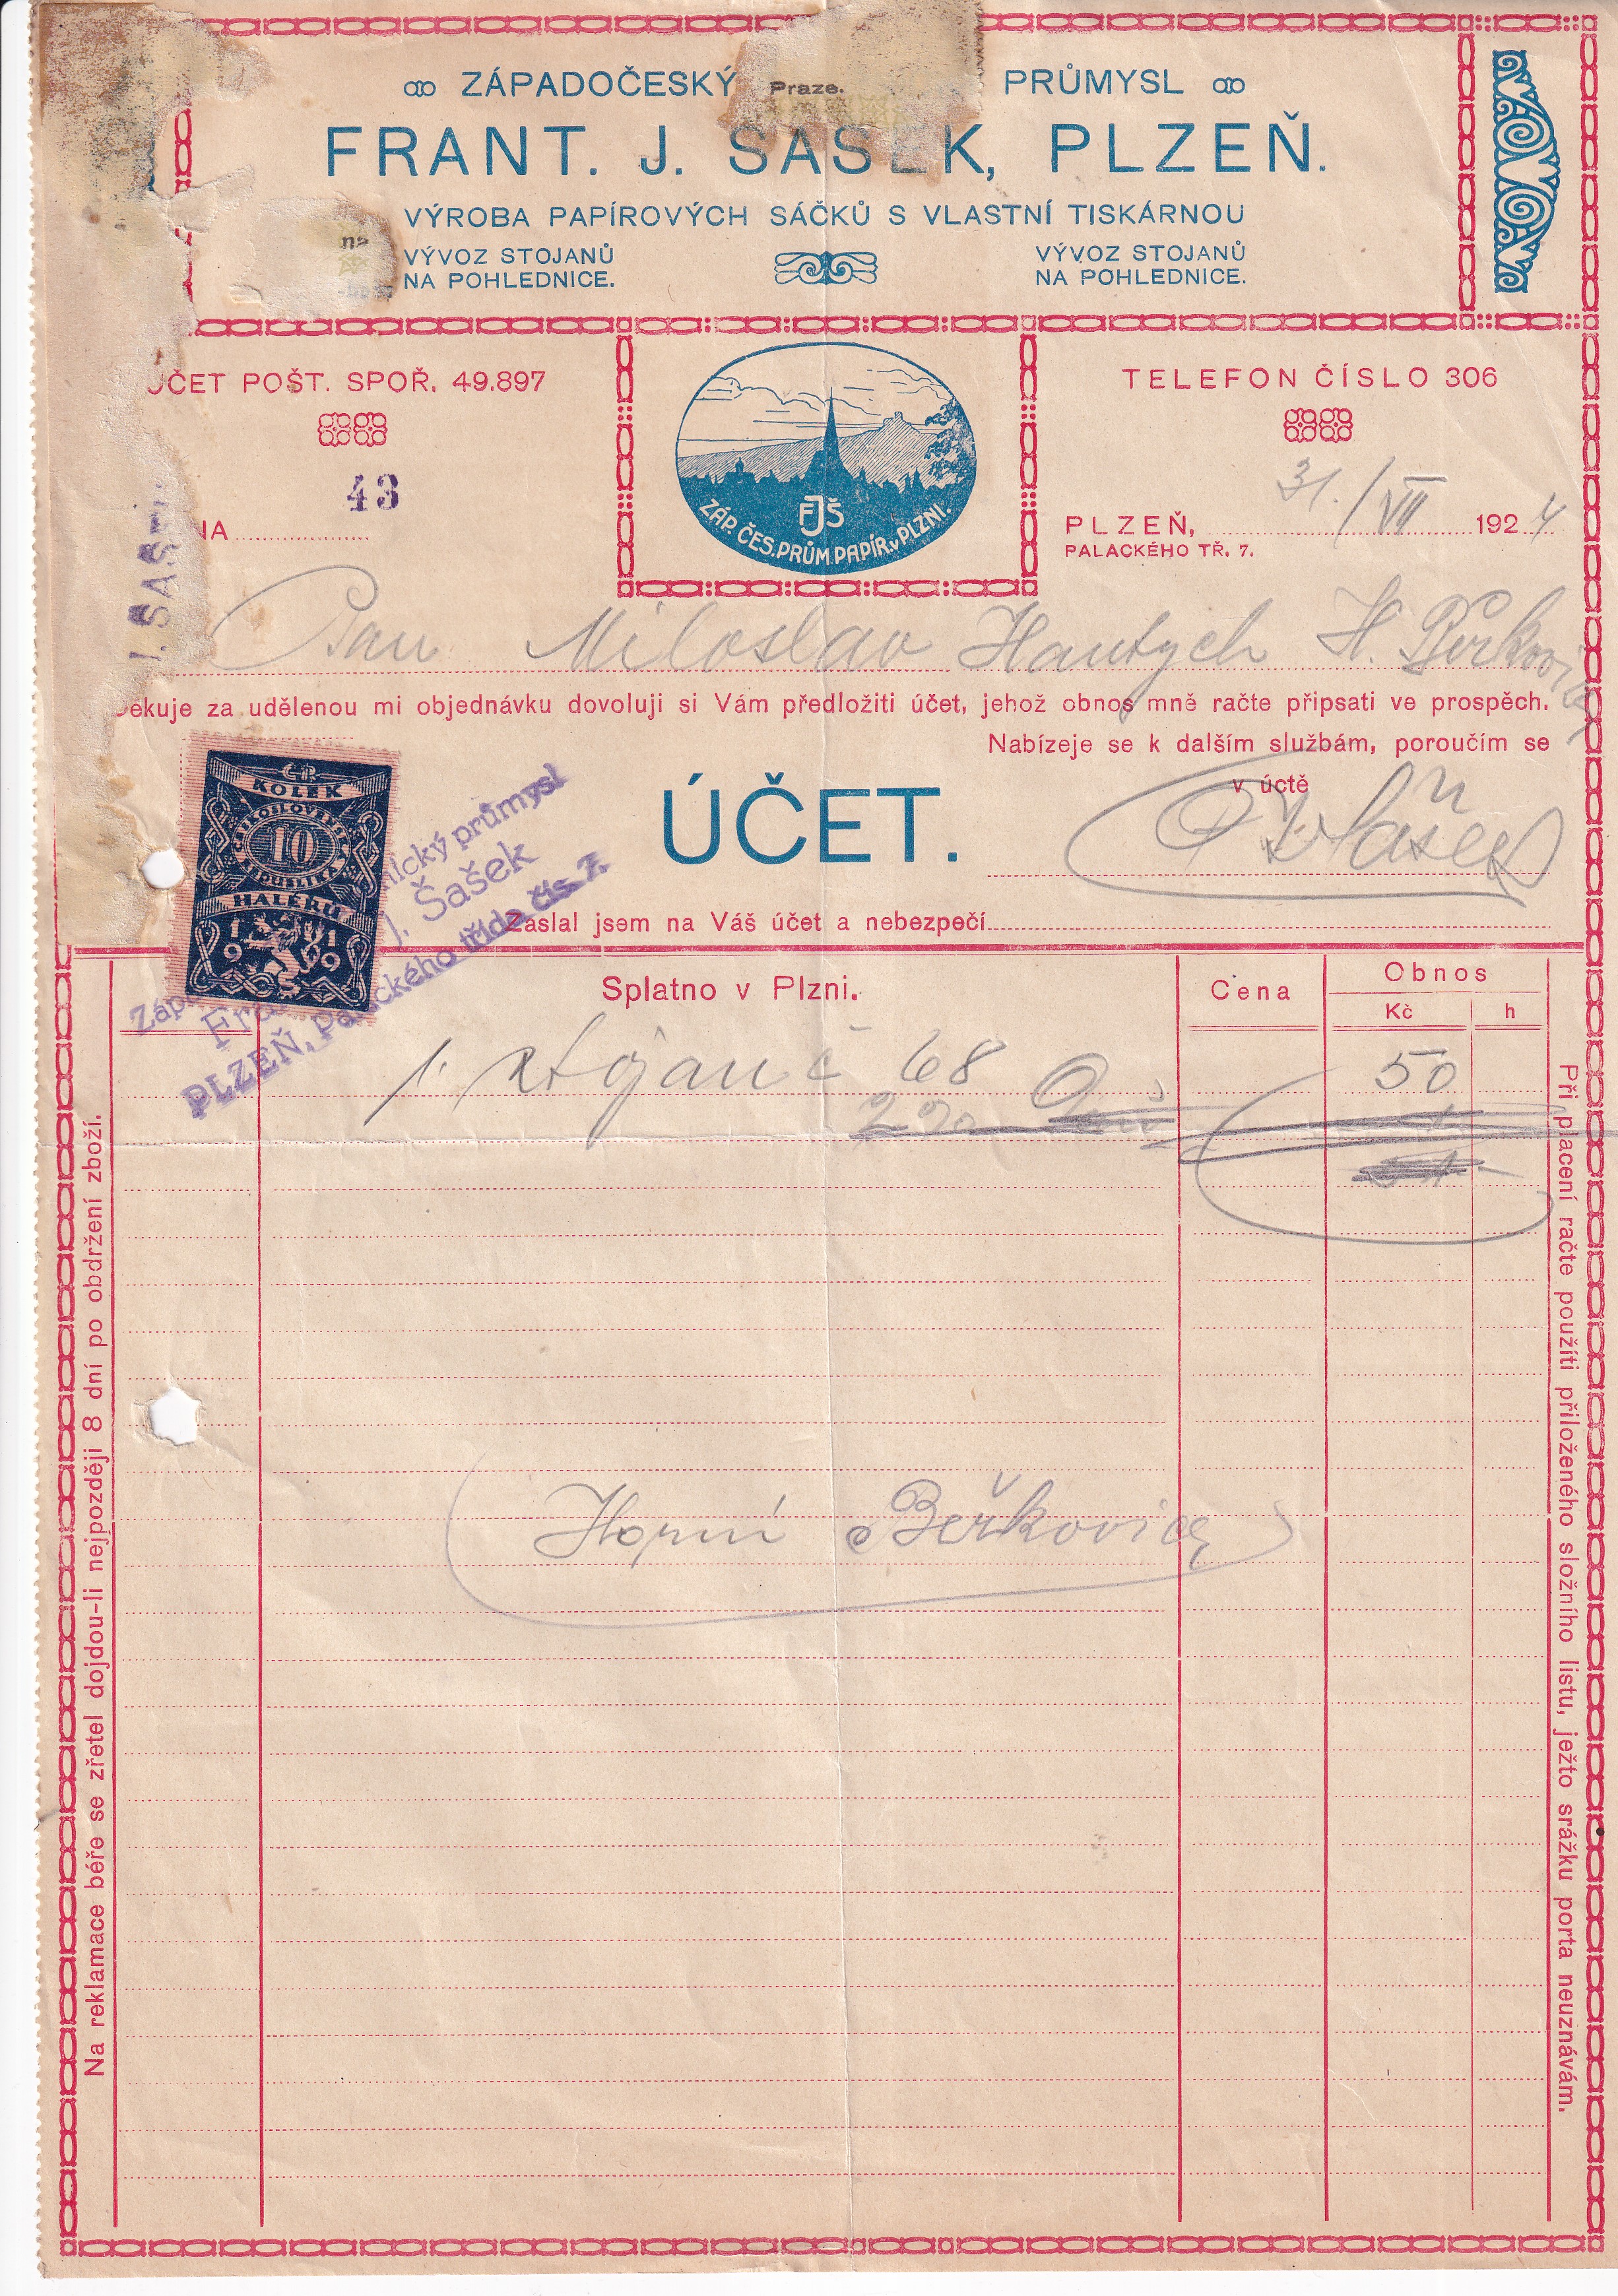 ZÁPADOČESKÝ Praze. PRŮMYSL
FRANT. J. ŠAŠEK, PLZEŇ.
VÝROBA PAPÍROVÝCH SÁČKŮ S VLASTNÍ TISKÁRNOU
na
VÝVOZ STOJANŮ
NA POHLEDNICE.
VÝVOZ STOJANŮ
NA POHLEDNICE.
ÚČET POŠT. SPOŘ. 49.897
TELEFON ČÍSLO 306
43
NA
FJŠ
ZÁP. ČES. PRŮM. PAPÍR. v PLZNI.
PLZEŇ, 31./VII 1924
PALACKÉHO TŘ. 7.
J. ŠAŠEK
Pan Miloslav Hantych H. Beřkovice
Děkuje za udělenou mi objednávku dovoluji si Vám předložiti účet, jehož obnos mně račte připsati ve prospěch.
Nabízeje se k dalším službám, poroučím se
v úctě
Šašek
KOLEK
ČESKOSLOVENSKÁ
10
REPUBLIKA
HALÉRŮ
1919
ÚČET.
nický průmysl
J. Šašek
PLZEŇ, Palackého třída čís. 7.
Zaslal jsem na Váš účet a nebezpečí
Splatno v Plzni.
Cena
Obnos
Kč h
1. stojan č 68 50
Horní Beřkovice
Na reklamace béře se zřetel dojdou-li nejpozději 8 dní po obdržení zboží.
Při placení račte použíti přiloženého složního listu, ježto srážku porta neuznávám.